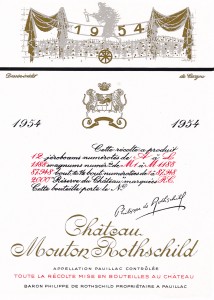 1954
Dessin inédit de Carzou
1954 1954
Cette récolte a produit
12 jéroboams numérotés de A à L
1188 magnums numérotés de M1 à M1188
87.948 bout. et ½ bout. numérotées de 1 à 87.948
2000 Réserve du Château marqués R.C.
Cette bouteille porte le No
Philippe de Rothschild
Château
Mouton Rothschild
APPELLATION PAUILLAC CONTRÔLÉE
TOUTE LA RÉCOLTE MISE EN BOUTEILLES AU CHÂTEAU
BARON PHILIPPE DE ROTHSCHILD PROPRIÉTAIRE A PAUILLAC